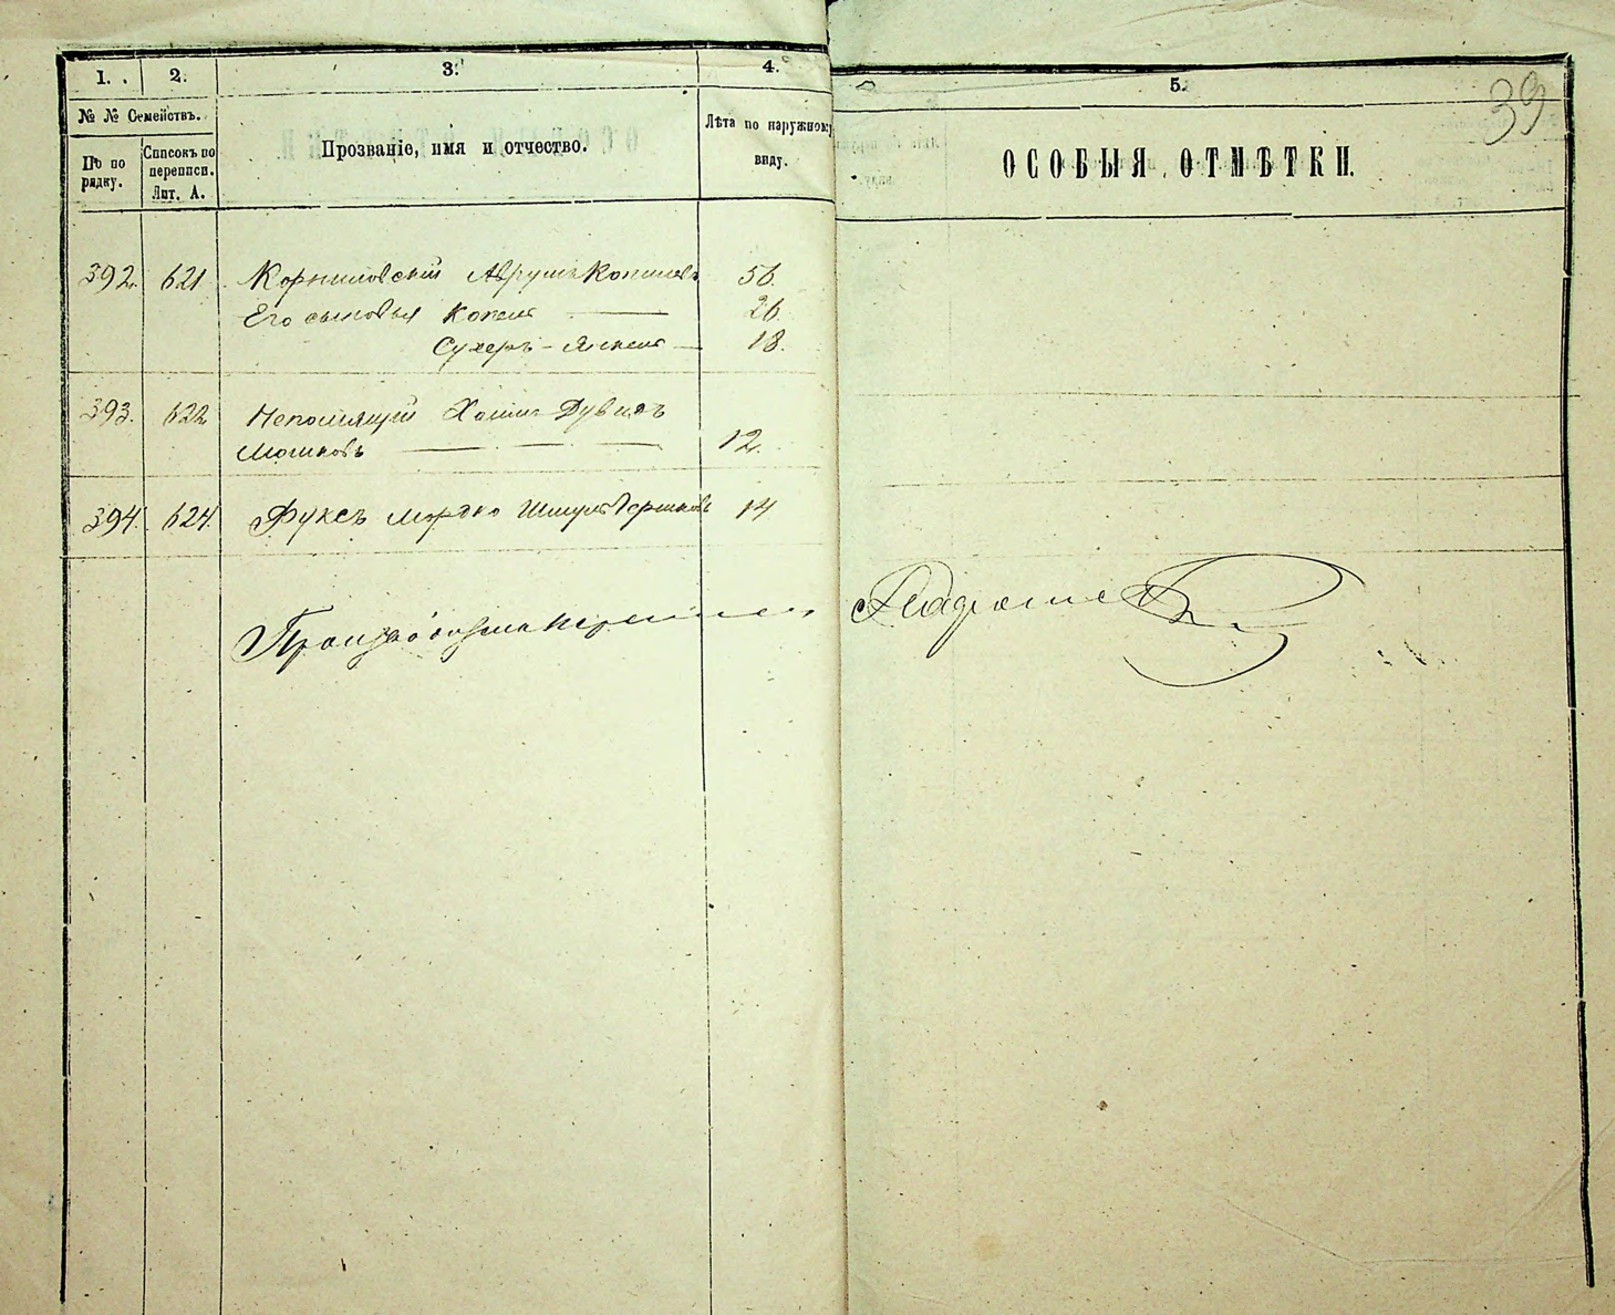 1. 2. 3. 4. 5.
39
№ № Семействъ.
По по рядку.
Списокъ по переписи. Лит. А.
Прозваніе, имя и отчество.
Лѣта по наружному виду.
ОСОБЫЯ ОТМѢТКИ.
392. 621 Корниловскій Аврумъ Копелевъ 56.
Его сыновья Копель 26
Сухеръ-Янкель 18.
393. 622 Непомящій Хаимъ Дувидъ
Мошковъ 12.
394. 624. Фуксъ Мордко Шмуль Гершковъ 14
Производилъ